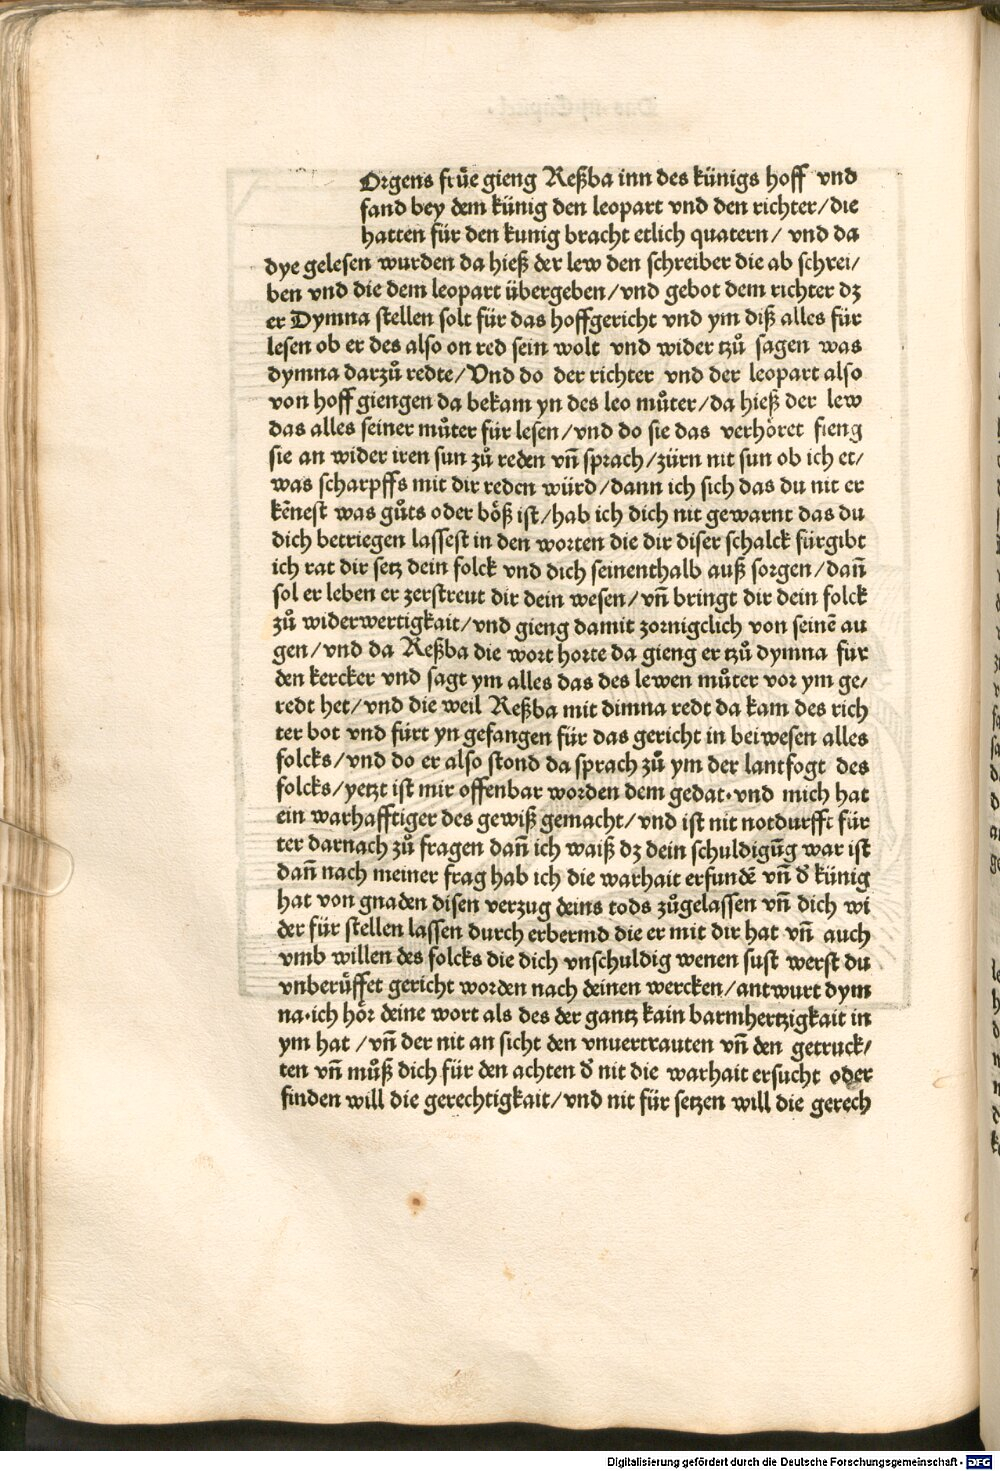 Orgens frůe gieng Reßba inn des künigs hoff vnd
fand bey dem künig den leopart vnd den richter/die
hatten für den kunig bracht etlich quatern/ vnd da
dye gelesen wurden da hieß der lew den schreiber die ab schrei/
ben vnd die dem leopart übergeben/vnd gebot dem richter dz
er Dymna stellen solt für das hoffgericht vnd ym diß alles für
lesen ob er des also on red sein wolt vnd wider tzů sagen was
dymna darzů redte/Vnd do der richter vnd der leopart also
von hoff giengen da bekam yn des leo můter/da hieß der lew
das alles seiner můter für lesen/vnd do sie das verhöret fieng
sie an wider iren sun zů reden vñ sprach/zürn nit sun ob ich et/
was scharpffs mit dir reden würd/dann ich sich das du nit er
kēnest was gůts oder böß ist/hab ich dich nit gewarnt das du
dich betriegen lassest in den worten die dir diser schalck fürgibt
ich rat dir setz dein folck vnd dich seinenthalb auß sorgen/dañ
sol er leben er zerstreut dir dein wesen/vñ bringt dir dein folck
zů widerwertigkait/vnd gieng damit zornigclich von seinē au
gen/vnd da Reßba die wort horte da gieng er tzů dymna für
den kercker vnd sagt ym alles das des lewen můter vor ym ge/
redt het/vnd die weil Reßba mit dimna redt da kam des rich
ter bot vnd fürt yn gefangen für das gericht in beiwesen alles
folcks/vnd do er also stond da sprach zů ym der lantfogt des
folcks/yetzt ist mir offenbar worden dem gedat·vnd mich hat
ein warhafftiger des gewiß gemacht/vnd ist nit notdurfft für
ter darnach zů fragen dañ ich waiß dz dein schuldigūg war ist
dañ nach meiner frag hab ich die warhait erfundē vñ ď künig
hat von gnaden disen verzug deins tods zůgelassen vñ dich wi
der für stellen lassen durch erbermd die er mit dir hat vñ auch
vmb willen des folcks die dich vnschuldig wenen sust werst du
vnberůffet gericht worden nach deinen wercken/antwurt dym
na·ich hör deine wort als des der gantz kain barmhertzigkait in
ym hat /vñ der nit an sicht den vnuertrauten vñ den getruck/
ten vñ můß dich für den achten ď nit die warhait ersucht oder
finden will die gerechtigkait/vnd nit für setzen will die gerech
Digitalisierung gefördert durch die Deutsche Forschungsgemeinschaft - DFG